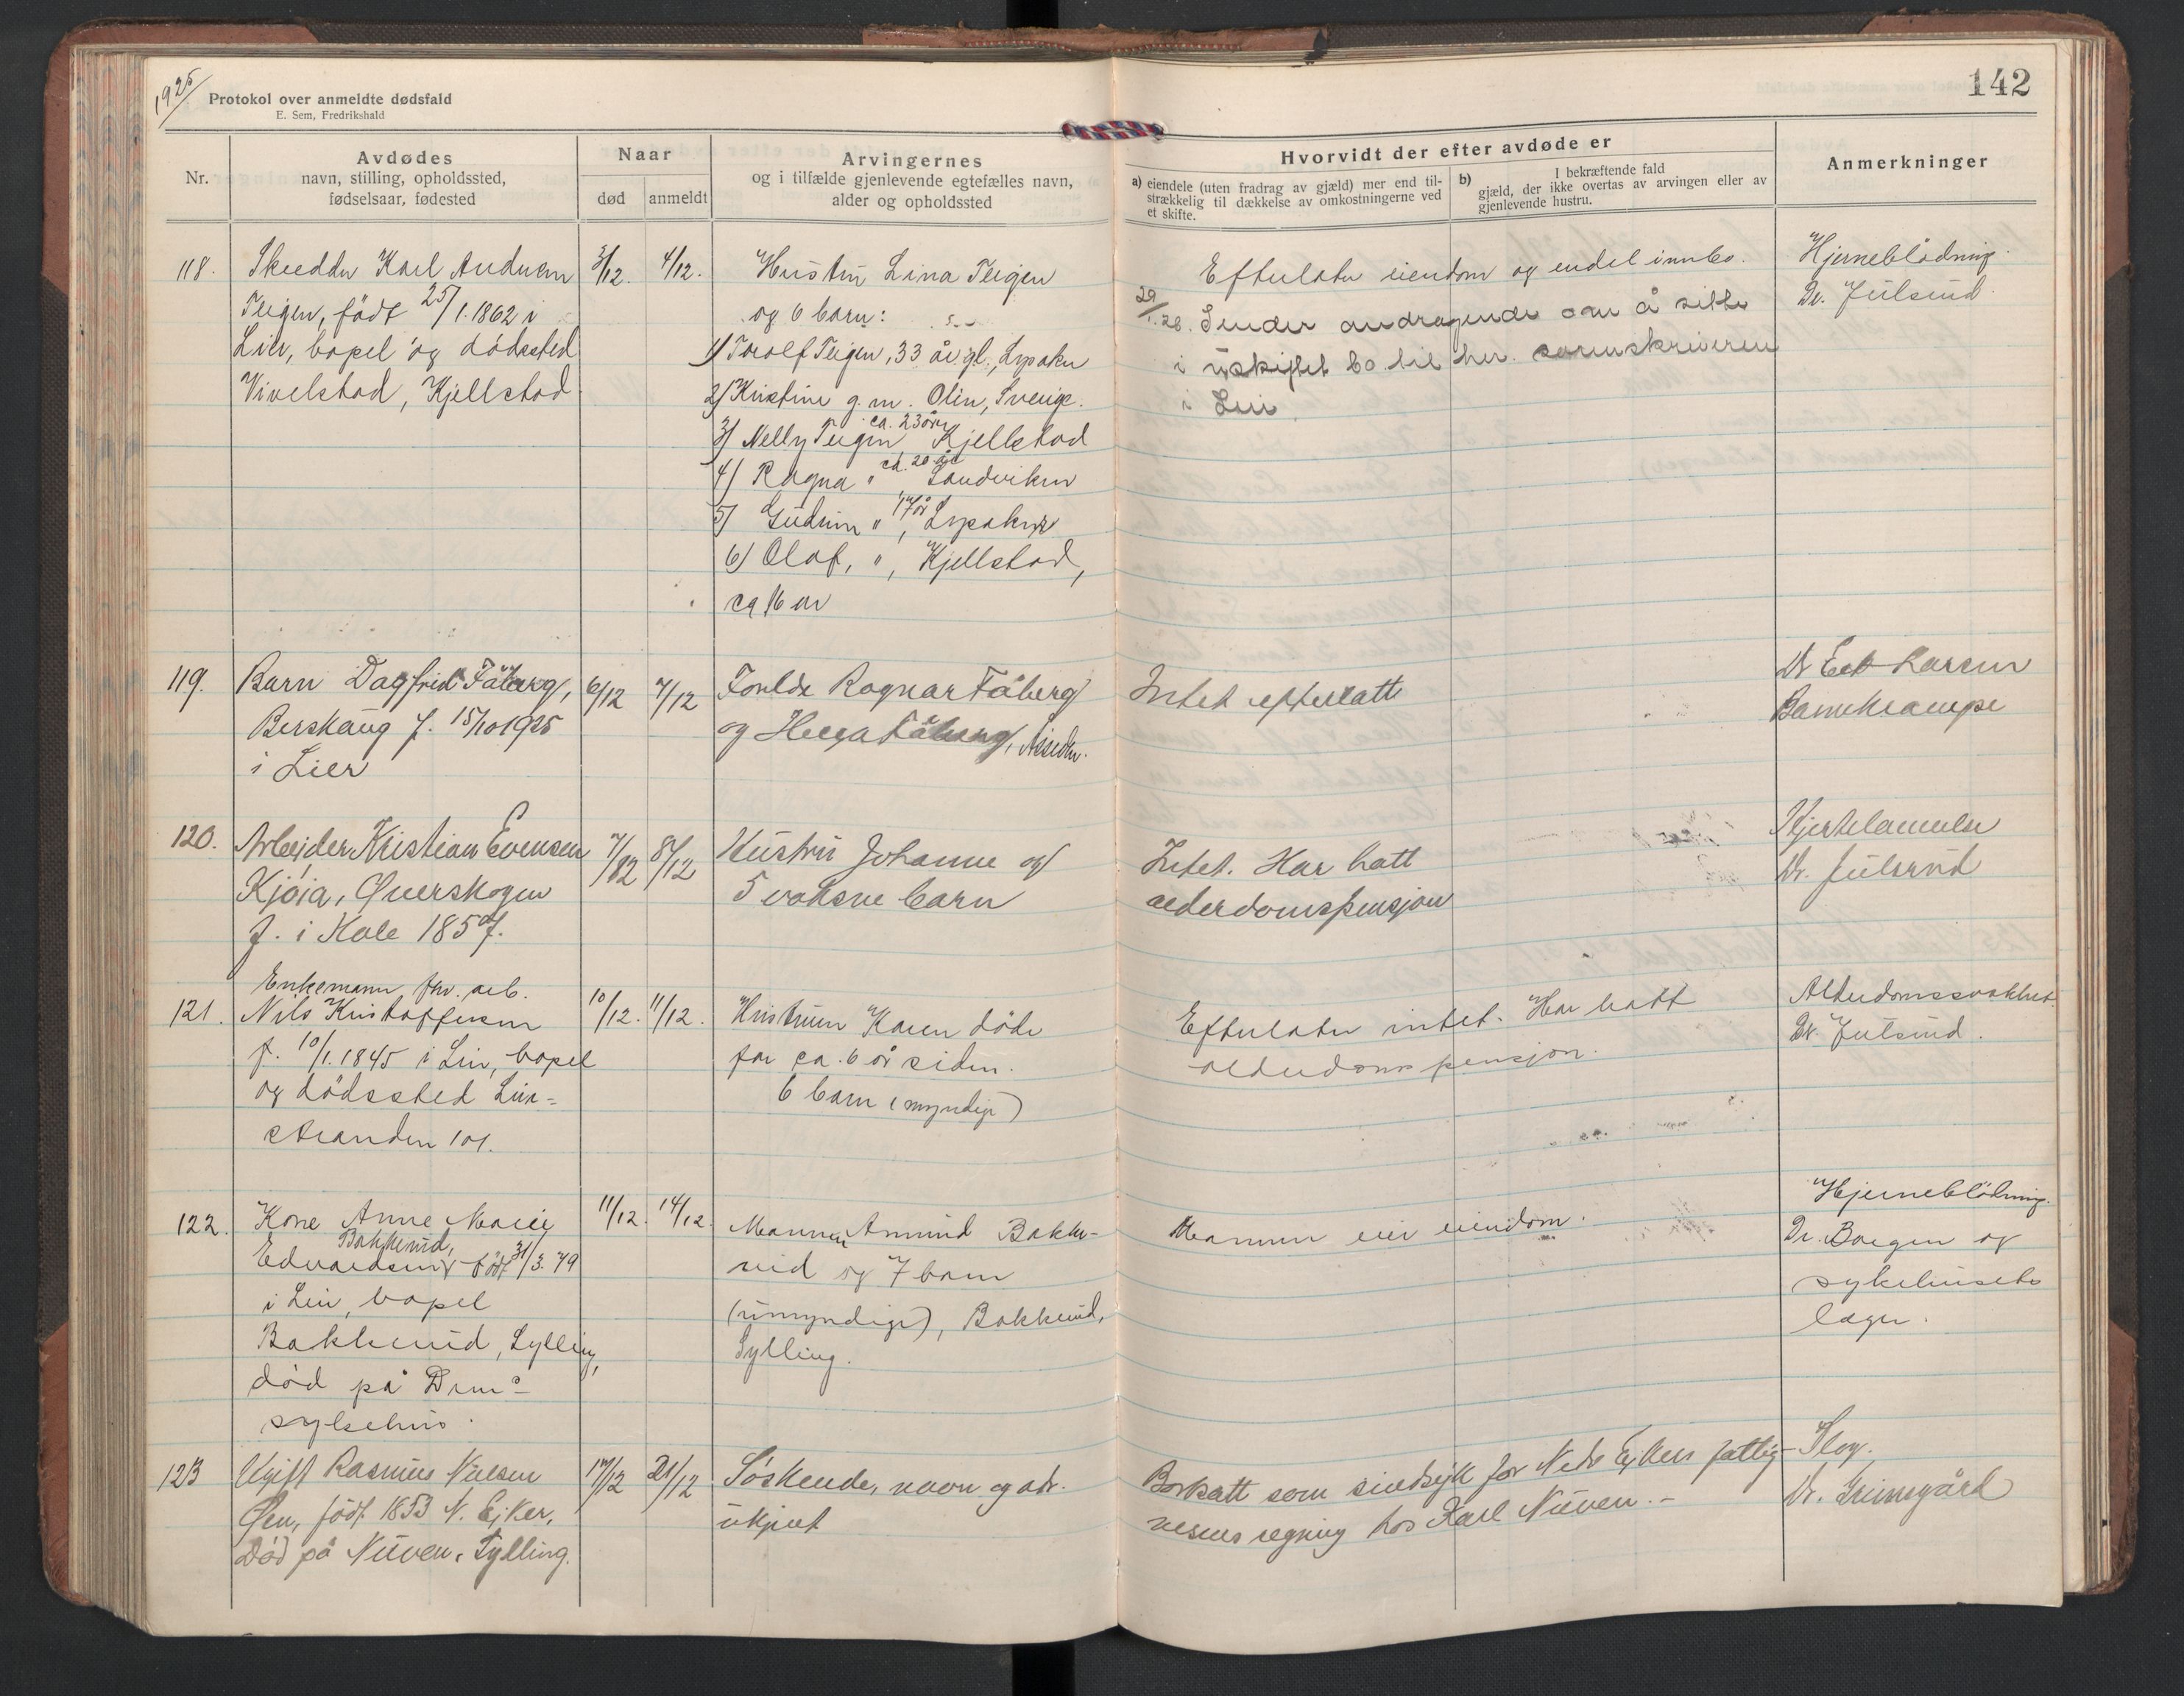 1925
142
Protokol over anmeldte dødsfald
E. Sem, Fredrikshald
Nr.
Avdødes
navn, stilling, opholdssted,
fødselsaar, fødested
Naar
død
anmeldt
Arvingernes
og i tilfælde gjenlevende egtefælles navn,
alder og opholdssted
Hvorvidt der efter avdøde er
a) eiendele (uten fradrag av gjæld) mer end til-
strækkelig til dækkelse av omkostningerne ved
et skifte.
b) I bekræftende fald
gjæld, der ikke overtas av arvingen eller av
gjenlevende hustru.
Anmerkninger
118.
Skredder Karl Andersen
Teigen, født 25/1.1862 i
Lier, bopel og dødssted
Vivelstad, Kjellstad
3/12.
4/12.
Hustru Lina Teigen
og 6 barn:
1) Torolf Teigen, 33 år gl., Lysaker
2) Kristine g.m. Olin, Sverige.
3) Nelly Teigen ca. 23 år, Kjellstad
4) Ragna " ca. 20 år Sandviken
5) Gudrun " 17 år, Lysaker
6) Olaf, ", Kjellstad,
ca 16 år
Efterlater eiendom og endel innbo.
29/1.26. Sender andragende om å sitte
i uskiftet bo til hr. sorenskriveren
i Lier
Hjerneblødning.
Dr. Julsrud.
119.
Barn Dagfrid Fåberg,
Berskaug f. 15/10 1925
i Lier
6/12
7/12
Forelde Ragnar Fåberg
og Helga Fåberg,
Intet efterlatt
Dr Larsen
Barnekrampe
120.
Arbeider Kristian Evensen
Kjøia, Øverskogen
f. i Hole 185
7/12
8/12
Hustru Johanne og
5 voksne barn
Intet. Har hatt
alderdomspensjon
Kjertelsvulster
Dr. Julsrud
121.
Enkemann fhv. arb.
Nils Kristoffersen
f. 10/1.1845 i Lier, bopel
og dødssted Lier-
stranden 101.
10/12.
11/12.
Hustruen Karen døde
for ca. 6 år siden.
6 barn (myndige)
Efterlater intet. Har hatt
alderdomspensjon.
Alderdomssvakhet
Dr. Julsrud.
122.
Kone Anne Marie
Bakkerud,
Edvardsen, født 31/3.79
i Lier, bopel
Bakkerud, Sylling,
død på Drm.s
sykehus.
11/12.
14/12.
Mannen Amund Bakke-
rud og 7 barn
(umyndige), Bakkerud,
Sylling.
Mannen eier eiendom.
Hjerneblødning.
Dr. Borgen og
sykehusets
læger.
123
Ugift Rasmus Nielsen
Øen, født 1853 N. Eiker,
Død på Nuven, Sylling.
17/12
21/12
Søskende, navn og adr.
ukjent
Bortsatt som sindsyk for Nedr Eikers fattig-
vesens regning hos Karl Nuven.-
Slag.
Dr. Grimsgård